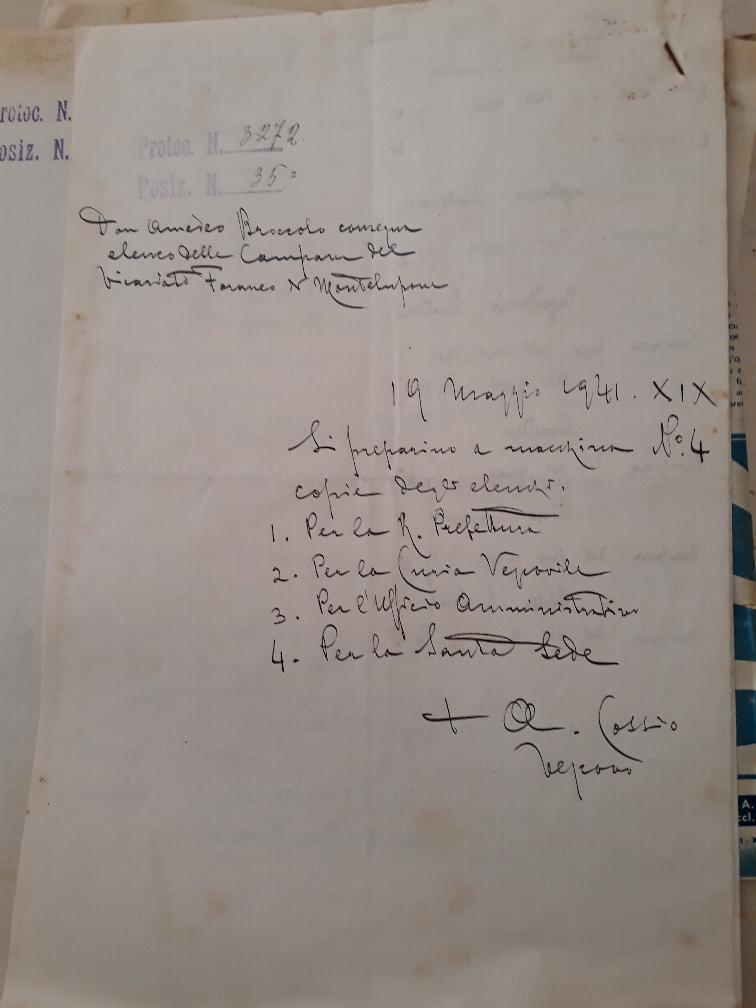 Protoc. N. 3272.
Posiz. N. 35=
rotoc. N.
osiz. N.
Don Amedeo Broccolo consegna
elenco delle Campane del
Vicariato Foraneo di Montelupone
19 Maggio 1941. XIX
Si preparino a macchina No. 4
copie degli elenchi.
1. Per la R. Prefettura
2. Per la Curia Vescovile
3. Per l'Ufficio Amministrativo
4. Per la Santa Sede
+ A. Cossio
Vescovo
A.
ccl.